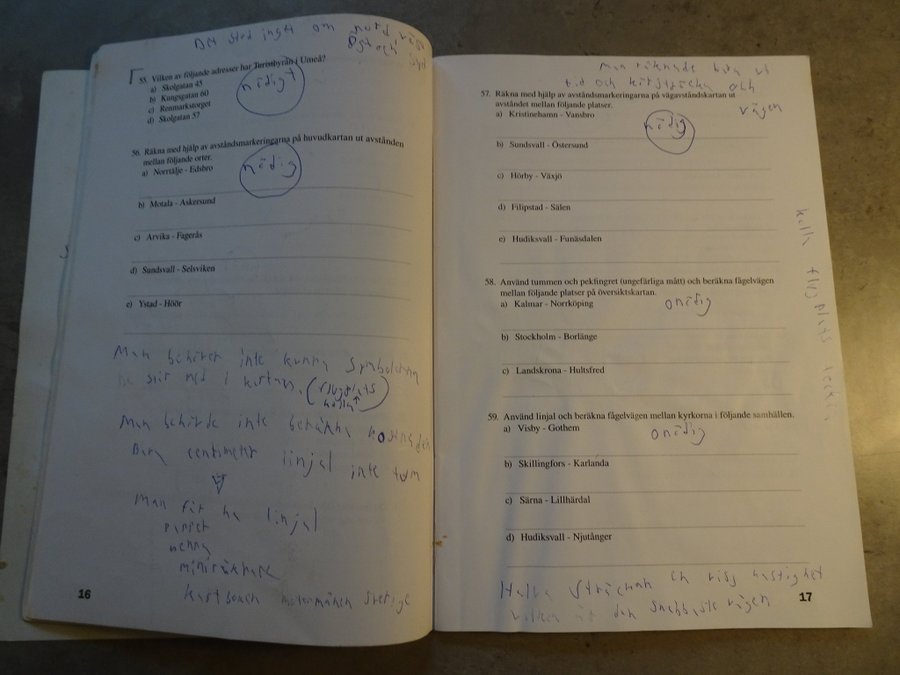 Det stod inget om nord väst
öst och syd
55. Vilken av följande adresser har Turistbyrån i Umeå?
a) Skolgatan 45
b) Kungsgatan 60
c) Renmarkstorget
d) Skolgatan 57
nödigt
56. Räkna med hjälp av avståndsmarkeringarna på huvudkartan ut avstånden
mellan följande orter.
a) Norrtälje - Edsbro
nödig
b) Motala - Askersund
c) Arvika - Fagerås
d) Sundsvall - Selsviken
e) Ystad - Höör
Man behöver inte kunna symbolerna
står med i kartans.
Man behövde inte beräkna
Bara centimeter linjal inte tum
Man får ha linjal
papper
penna
miniräknare
kartboken motormännen sverige
16
man räknade bara ut
tid och körsträcka och
vägen
57. Räkna med hjälp av avståndsmarkeringarna på vägavståndskartan ut
avståndet mellan följande platser.
a) Kristinehamn - Vansbro
nödig
b) Sundsvall - Östersund
c) Hörby - Växjö
d) Filipstad - Sälen
e) Hudiksvall - Funäsdalen
58. Använd tummen och pekfingret (ungefärliga mått) och beräkna fågelvägen
mellan följande platser på översiktskartan.
a) Kalmar - Norrköping
onödig
b) Stockholm - Borlänge
c) Landskrona - Hultsfred
59. Använd linjal och beräkna fågelvägen mellan kyrkorna i följande samhällen.
a) Visby - Gothem
onödig
b) Skillingfors - Karlanda
c) Särna - Lillhärdal
d) Hudiksvall - Njutånger
Halva sträckan en viss hastighet
vilken är den snabbaste vägen
17
kolla flygplats tecken